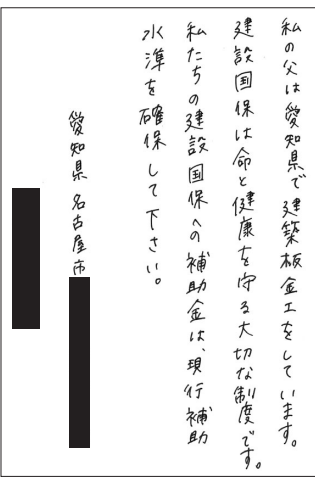 私の父は愛知県で建築板金工をしています。
建設国保は命と健康を守る大切な制度です。
私たちの建設国保への補助金は、現行補助
水準を確保して下さい。
愛知県名古屋市